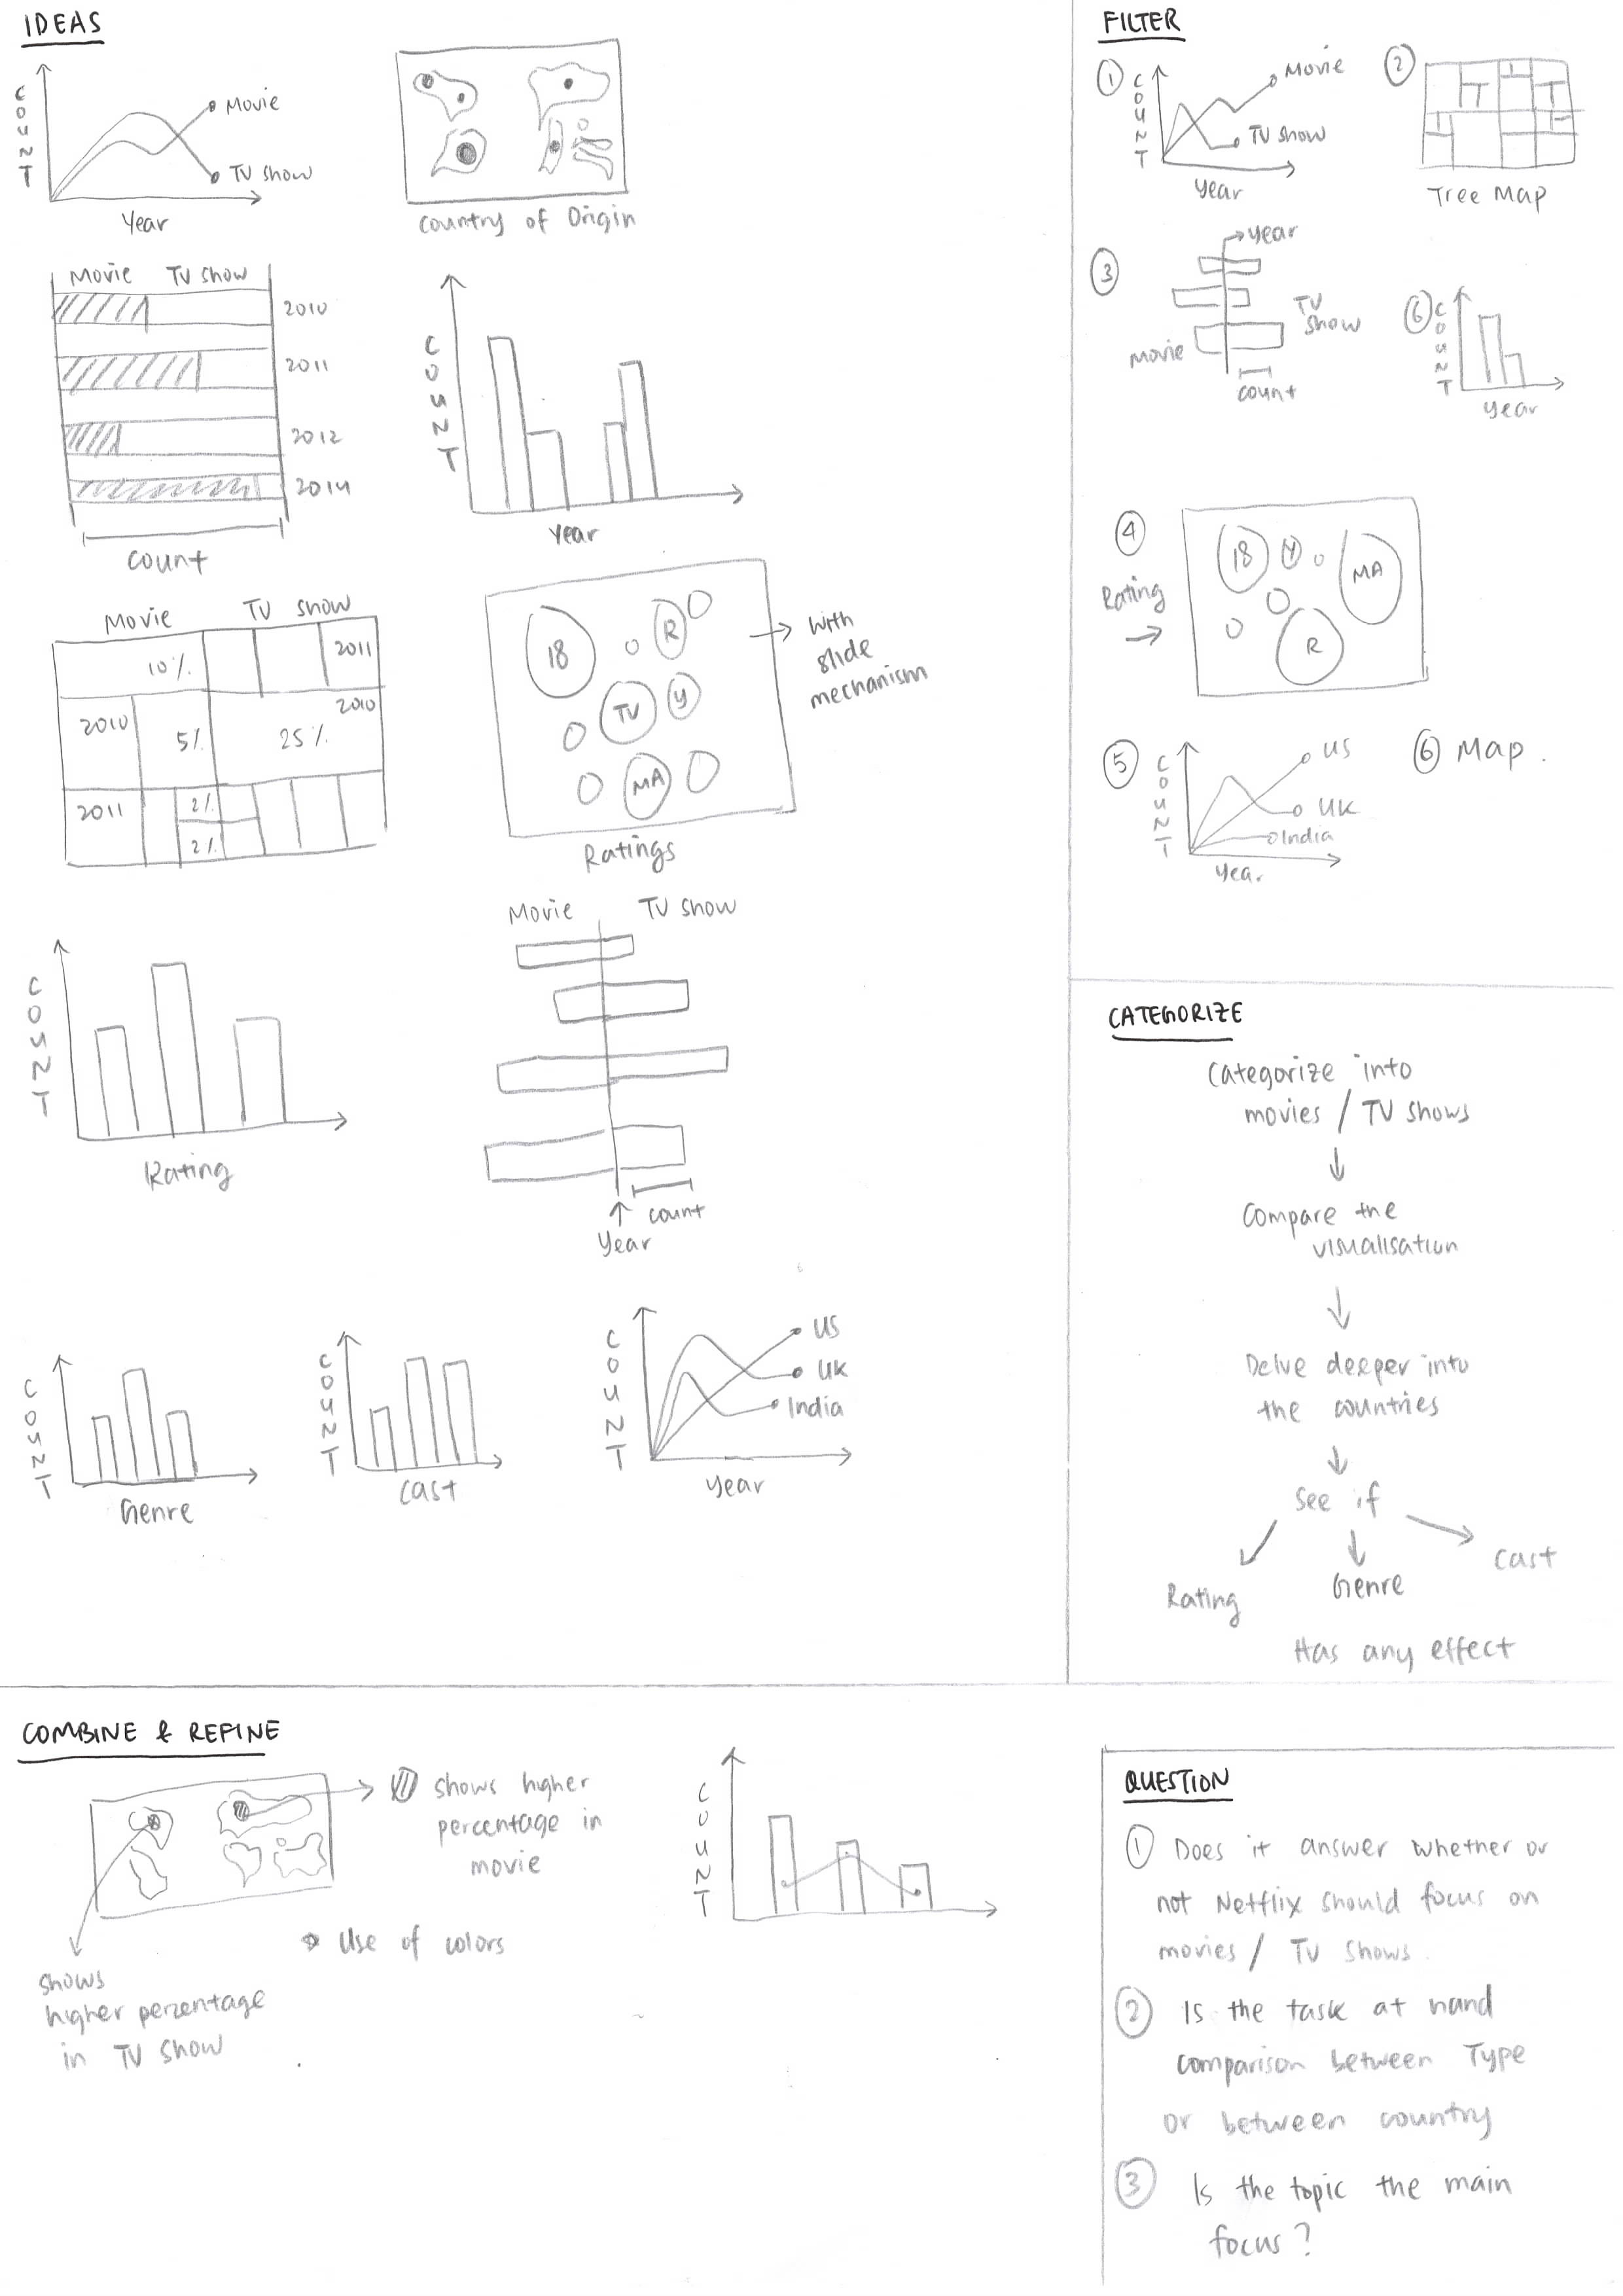 IDEAS
COUNT
Movie
TV show
Year
Country of Origin
Movie TV show
2010
2011
2012
2014
Count
COUNT
Year
Movie TV show
10%
2011
2010
5%
2010
25%
2011
2%
2%
18
R
TV
y
MA
With
slide
mechanism
Ratings
COUNT
Rating
Movie TV show
count
Year
COUNT
Genre
COUNT
Cast
COUNT
US
UK
India
Year
FILTER
1
COUNT
Movie
TV show
Year
2
Tree Map
3
year
TV
show
Movie
count
6
COUNT
year
4
Rating
18
Y
MA
R
5
COUNT
US
UK
India
Year
6 Map.
CATEGORIZE
Categorize into
movies / TV shows
Compare the
visualisation
Delve deeper into
the countries
See if
Rating
Genre
Cast
Has any effect
COMBINE & REFINE
shows higher
percentage in
movie
Use of colors
shows
higher percentage
in TV show
COUNT
QUESTION
1 Does it answer whether or
not Netflix should focus on
movies / TV shows.
2 Is the task at hand
comparison between Type
or between country
3 Is the topic the main
focus?